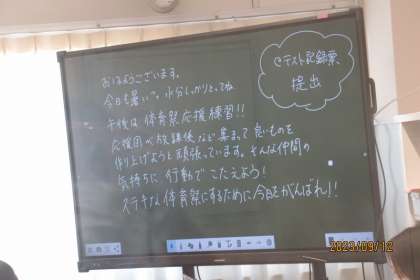 おはようございます。
今日も暑い。水分しっかりとってね
午後は体育祭応援練習!!
応援団が放課後など集まって良いものを
作り上げようと頑張っています。そんな仲間の
気持ちに行動でこたえよう!
ステキな体育祭にするために今日もがんばれ!!
テスト記録票
提出
2023/09/12